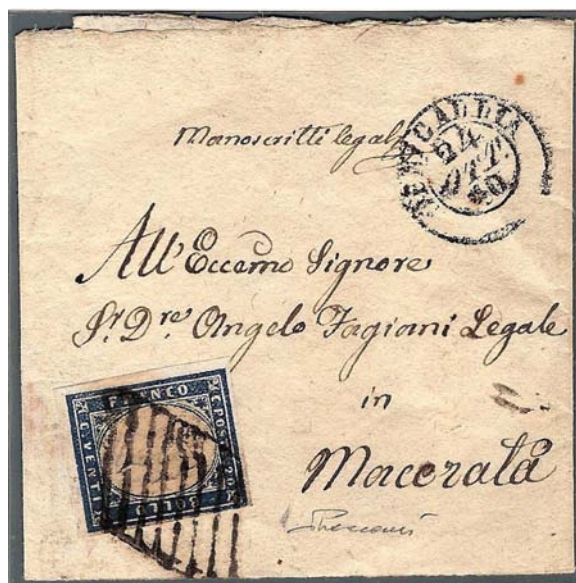 Manoscritti legali
SINIGALLIA
24
OTT.
60
All'Eccemo Signore
Sr. Dre. Angelo Fagiani Legale
in
Macerata
FRANCO
C. POSTE 20
BOLLO
C. VENTI